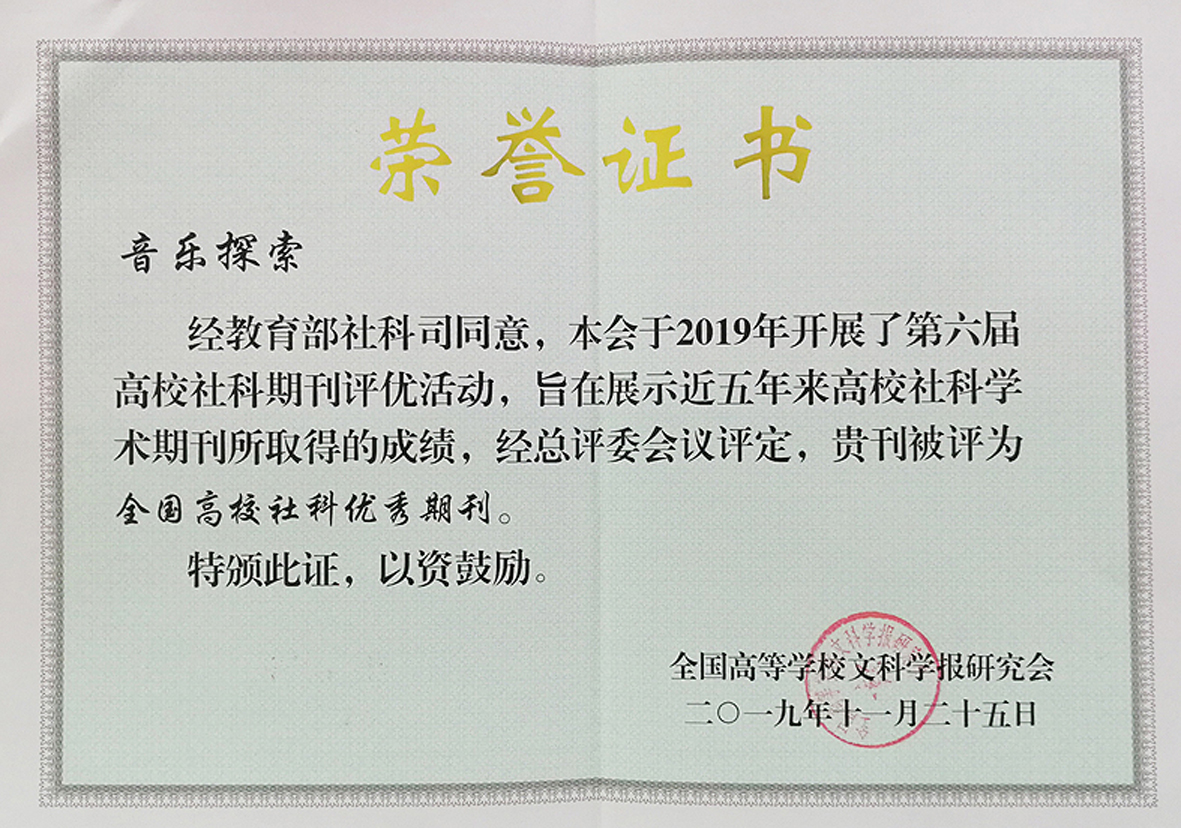 荣誉证书
音乐探索
经教育部社科司同意，本会于2019年开展了第六届
高校社科期刊评优活动，旨在展示近五年来高校社科学
术期刊所取得的成绩，经总评委会议评定，贵刊被评为
全国高校社科优秀期刊。
特颁此证，以资鼓励。
文科学报研
全国高等学校文科学报研究会
二〇一九年十一月二十五日